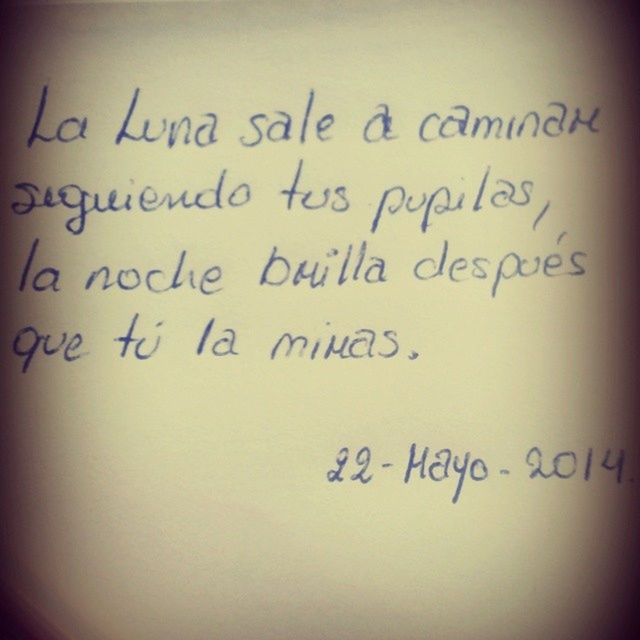 La Luna sale a caminar
siguiendo tus pupilas,
la noche brilla después
que tú la miras.
22-Mayo-2014.